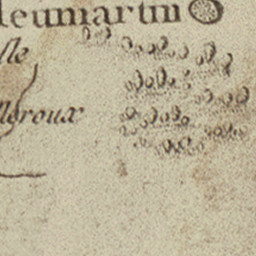 leumartin
sle
lleroux